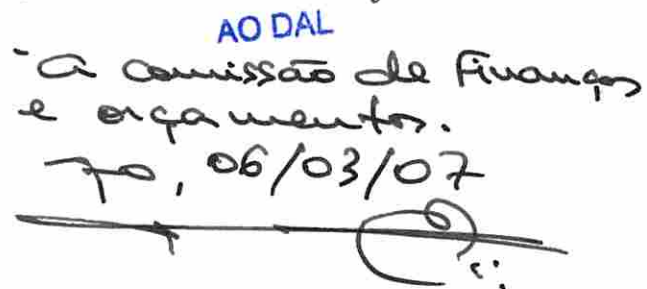 AO DAL
À comissão de Finanças
e orçamentos.
06/03/07